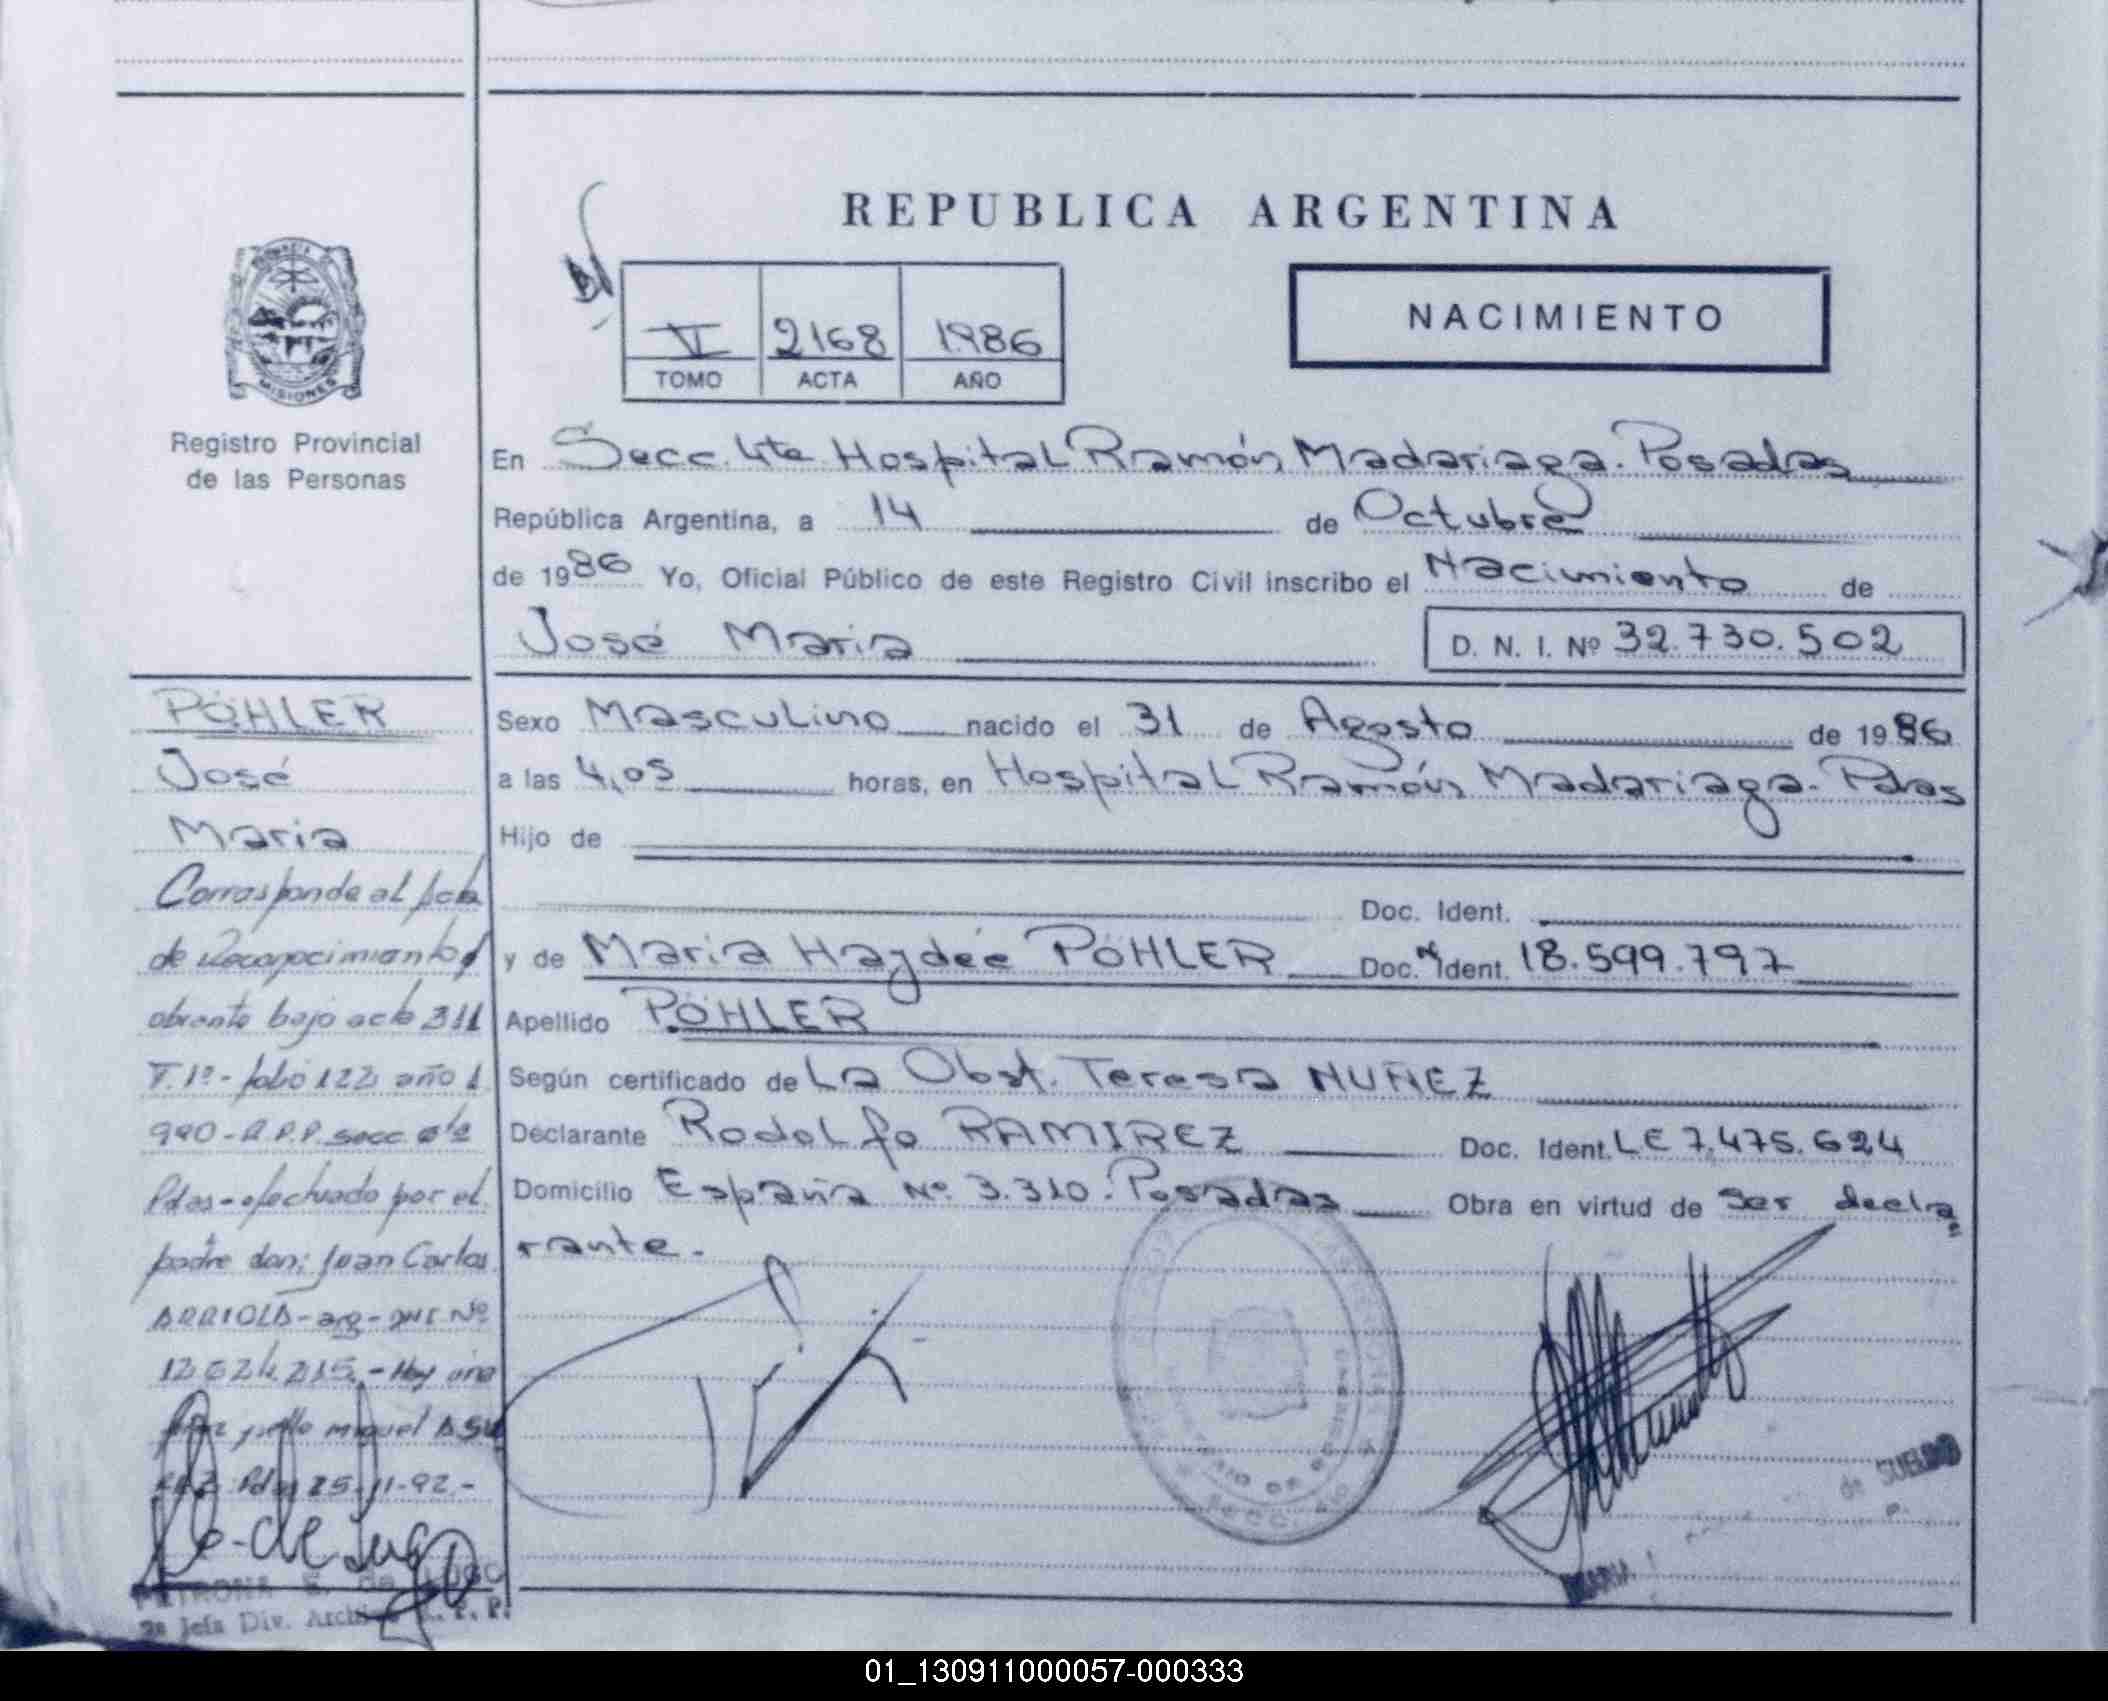 REPUBLICA ARGENTINA
VI 2168 1986
TOMO ACTA AÑO
NACIMIENTO
MISIONES
Registro Provincial
de las Personas
En Secc. 4ta Hospital Ramón Madariaga. Posadas
República Argentina, a 14 de Octubre
de 1986 Yo, Oficial Público de este Registro Civil inscribo el Nacimiento de
José Maria D. N. I. Nº 32.730.502
Sexo Masculino nacido el 31 de Agosto de 1986
a las 4,05 horas, en Hospital Ramón Madariaga. Pdas
Hijo de
Doc. Ident.
y de Maria Haydée PÖHLER Doc. Ident. 18.599.797
Apellido PÖHLER
Según certificado de La Obst. Teresa NUÑEZ
Declarante Rodolfo RAMIREZ Doc. Ident. LE 7.475.624
Domicilio España Nº 3.310. Posadas Obra en virtud de ser decla
rante.
PÖHLER
José
Maria
Corresponde al Acta
de Reconocimiento
obrante bajo acta 311
T. 1º - folio 122 año 1
990 - R.P.P. secc.
Pdas - efectuado por el
padre don: Juan Carlos
ARRIOLA - arg - DNI Nº
12.624.215. - Hay una
y sello miguel
Pdas 25-11-92.-
PETRONA E. de LUGO
2ª Jefa Div. Archivo R. P. P.
de SUELDO
01_130911000057-000333